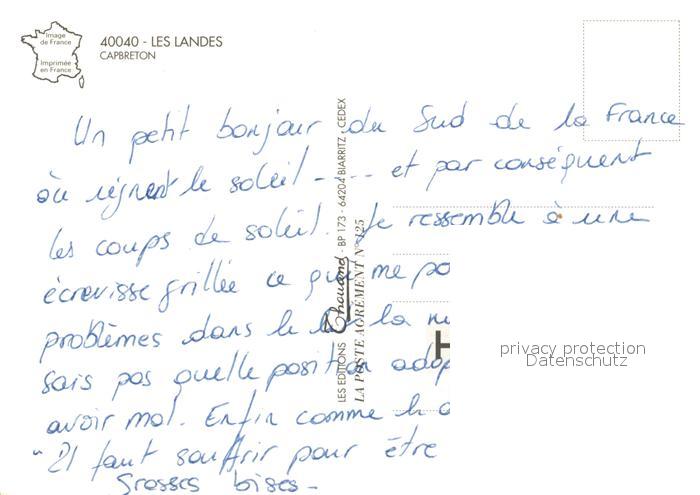 Image
de France
Imprimée
en France
40040 - LES LANDES
CAPBRETON
Un petit bonjour du Sud de la France
où règnent le soleil - ... et par conséquent
les coups de soleil. Je ressemble à une
écrevisse grillée ce qui me po
problèmes dans le la nu
sais pas quelle position adop
avoir mal. Enfin comme
"Il faut souffrir pour être
Grosses bises -
LES EDITIONS Chouand - BP 173 - 64204 BIARRITZ CEDEX
LA POSTE AGRÉMENT N° 125
H
privacy protection
Datenschutz